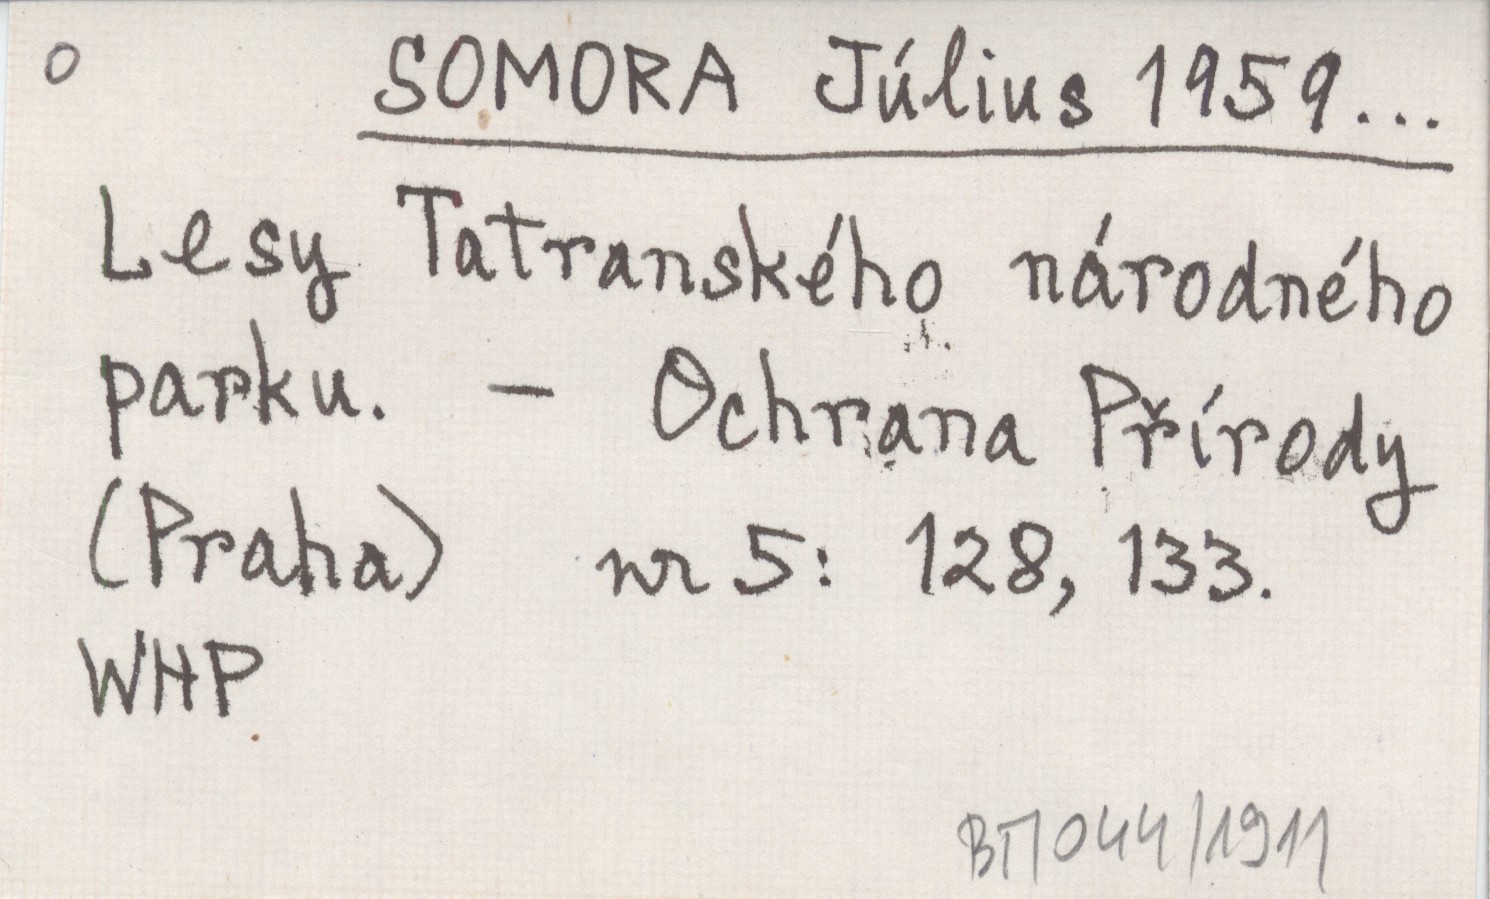 o SOMORA Július 1959...
Lesy Tatranského národného
parku. – Ochrana Přírody
(Praha) nr 5: 128, 133.
WHP
BTI 044/1911